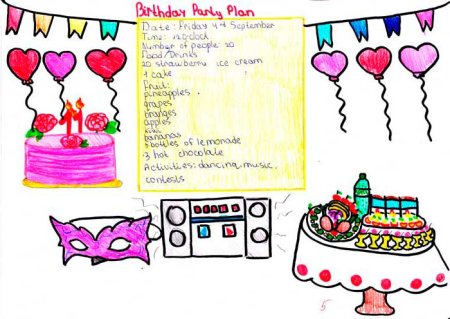 Birthday Party Plan
Date: Friday 4th September
Time: 12 o'clock
Number of people: 20
Food/Drinks
20 strawberry ice cream
1 cake
Fruit:
pineapples
grapes
oranges
apples
kiwi
bananas
5 bottles of lemonade
3 hot chocolate
Activities: dancing, music,
contests
11
5